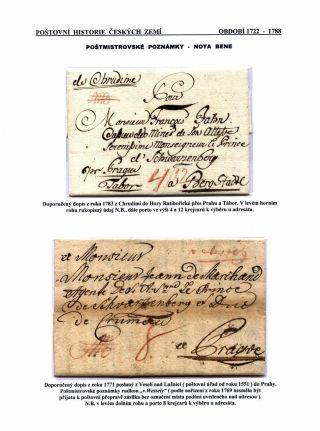 POŠTOVNÍ HISTORIE ČESKÝCH ZEMÍ OBDOBÍ 1722 - 1788
POŠTMISTROVSKÉ POZNÁMKY - NOTA BENE
de Chrudime
Monsieur François Zahn
Capitaine de Mines de Son Altesse
Serenissime Monseigneur le Prince
d'Schwarzenberg
par Prague
Tabor 4/12 à Bergstadtl
Doporučený dopis z roku 1783 z Chrudimi do Hory Ratibořické přes Prahu a Tábor. V levém horním
rohu rukopisný údaj N.B., dále porto ve výši 4 a 12 krejcarů k výběru u adresáta.
a Monsieur
Monsieur Jean de Marchand
Agente de S: le Prince
de Schwarzenberg et Duc
de Crumau
8. Prague
Doporučený dopis z roku 1771 poslaný z Veselí nad Lužnicí ( poštovní úřad od roku 1551 ) do Prahy.
Poštmistrovské poznámky rudkou „v.Wessely" ( podle nařízení z roku 1769 nesměla být
přijata k poštovní přepravě zásilka bez označení místa podání uvedeného nad adresou ).
N.B. v levém dolním rohu a porto 8 krejcarů k výběru u adresáta.